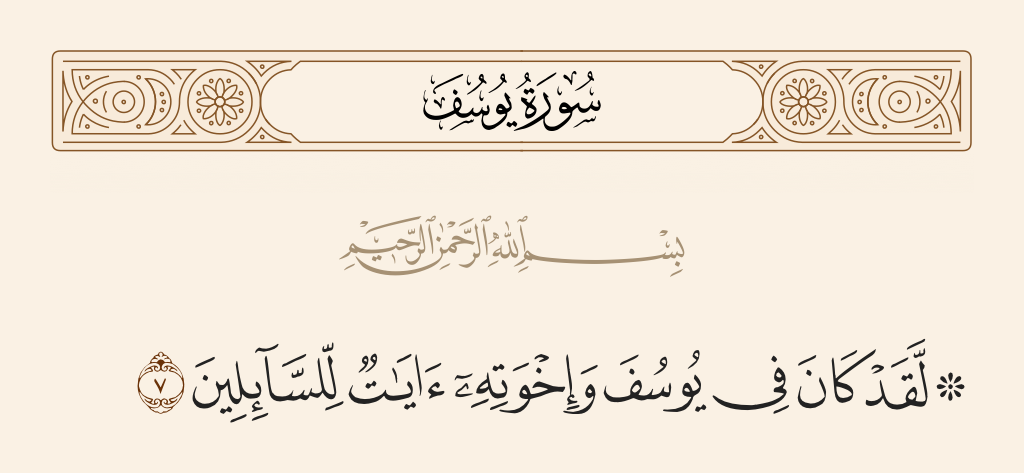 سُورَةُ يُوسُفَ
بِسْمِ ٱللَّهِ ٱلرَّحْمَٰنِ ٱلرَّحِيمِ
۞ لَّقَدْ كَانَ فِى يُوسُفَ وَإِخْوَتِهِۦٓ ءَايَٰتٌ لِّلسَّآئِلِينَ ٧